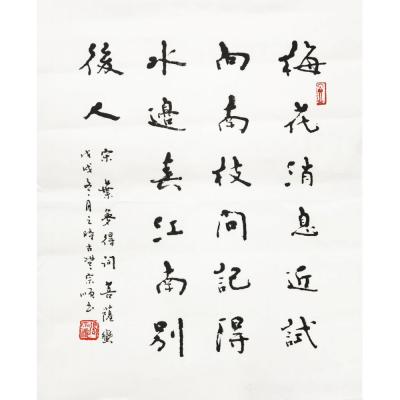 梅花消息近試
向南枝問記得
水邊春江南別
後人
宋葉夢得詞菩薩蠻
戊戌冬月之時古宗順书